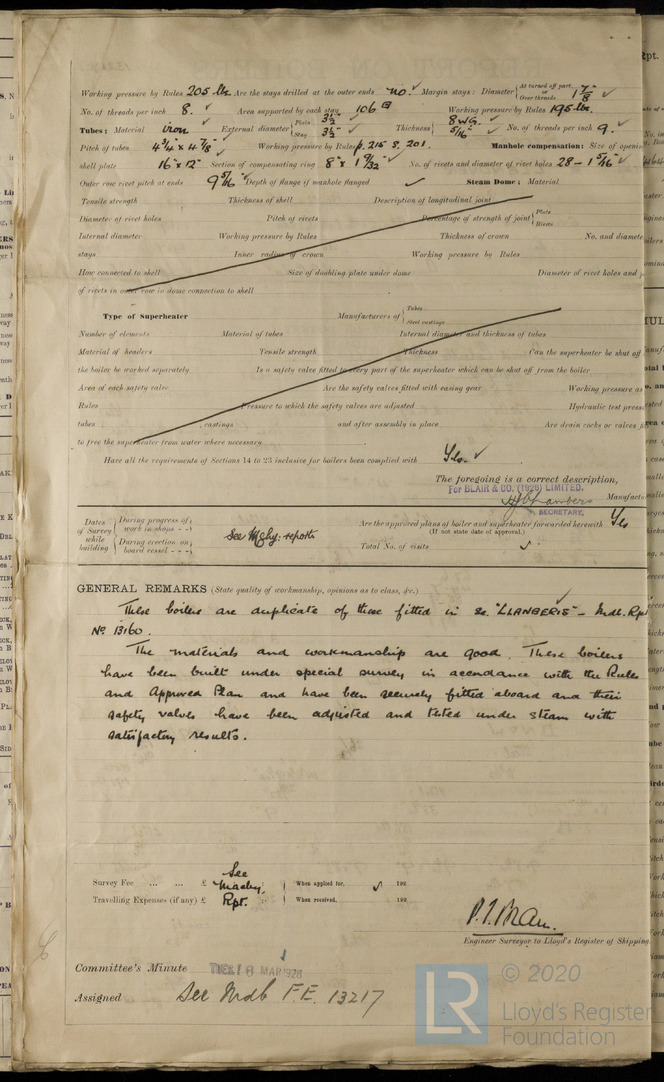 Working pressure by Rules 205 lbs Are the stays drilled at the outer ends no. ✓ Margin stays: Diameter { At turned off part, or Over threads 1 7/8" ✓
No. of threads per inch 8. ✓ Area supported by each stay 106 Working pressure by Rules 195 lbs.
Tubes: Material iron ✓ External diameter { Plain 3½" Stay 3½" ✓ Thickness { 8 WG. 5/16" ✓ No. of threads per inch 9. ✓
Pitch of tubes 4¾" x 4 7/8" ✓ Working pressure by Rules p. 215 S. 201. Manhole compensation: Size of openin
shell plate 16" x 12" Section of compensating ring 8" x 1 9/32" ✓ No. of rivets and diameter of rivet holes 28 - 1 5/16" ✓
Outer row rivet pitch at ends 9 5/16" Depth of flange if manhole flanged ✓ Steam Dome; Material
Tensile strength Thickness of shell Description of longitudinal joint
Diameter of rivet holes Pitch of rivets Percentage of strength of joint { Plate Rivets
Internal diameter Working pressure by Rules Thickness of crown No. and diamete
stays Inner radius of crown Working pressure by Rules
How connected to shell Size of doubling plate under dome Diameter of rivet holes and p
of rivets in outer row in dome connection to shell
Type of Superheater Manufacturers of { Tubes Steel castings
Number of elements Material of tubes Internal diameter and thickness of tubes
Material of headers Tensile strength Thickness Can the superheater be shut off
the boiler be worked separately Is a safety valve fitted to every part of the superheater which can be shut off from the boiler
Area of each safety valve Are the safety valves fitted with easing gear Working pressure as
Rules Pressure to which the safety valves are adjusted Hydraulic test press
tubes , castings and after assembly in place Are drain cocks or valves f
to free the superheater from water where necessary
Have all the requirements of Sections 14 to 23 inclusive for boilers been complied with Yes. ✓
The foregoing is a correct description,
For BLAIR & CO. (1926) LIMITED.
Chambers Manufactu
SECRETARY.
Dates of Survey while building { During progress of work in shops - - During erection on board vessel - - - See Mchy: reports Are the approved plans of boiler and superheater forwarded herewith Yes
(If not state date of approval.)
Total No. of visits ✓
GENERAL REMARKS (State quality of workmanship, opinions as to class, &c.)
These boilers are duplicate of those fitted in ss. "LLANBERIS" - Mdb. Rpt
No. 13160.
The materials and workmanship are good. These boilers
have been built under special survey in accordance with the Rules
and Approved Plan and have been securely fitted aboard and their
safety valves have been adjusted and tested under steam with
satisfactory results.
Survey Fee ... ... £ See Machy. When applied for, ✓ 192
Travelling Expenses (if any) £ Rpt. When received, 192
Engineer Surveyor to Lloyd's Register of Shipping
Committee's Minute TUES. 6 MAR 1928
Assigned See Mdb F.E. 13217
LR
© 2020
Lloyd's Register
Foundation